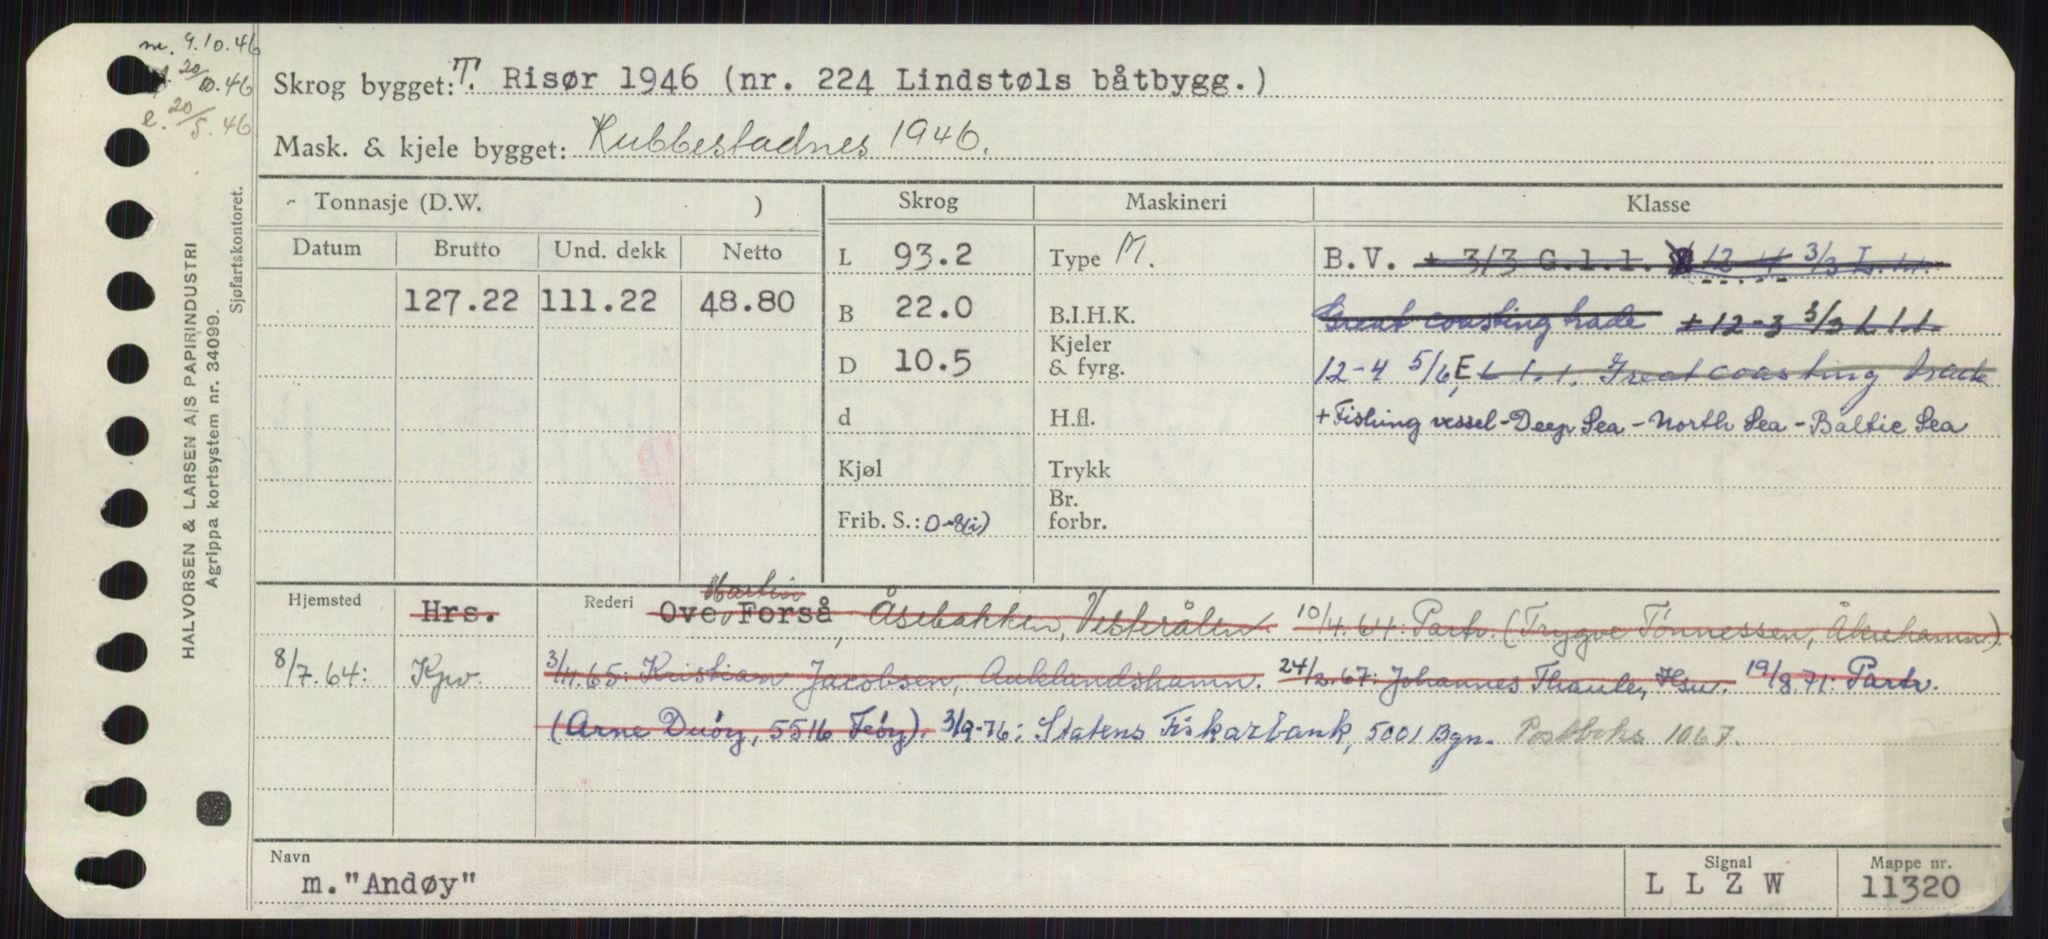 m. 9.10.46
20/10.46
e. 20/5.46
Skrog bygget: T. Risør 1946 (nr. 224 Lindstøls båtbygg.)
Mask. & kjele bygget: Rubbestadnes 1946.
Tonnasje (D.W. ) Skrog Maskineri Klasse
Datum Brutto Und. dekk Netto L 93.2 Type M. B.V. + 3/3 G.l.l. 12-4 3/3 L.l.l.
127.22 111.22 48.80 B 22.0 B.I.H.K. Great coasting trade + 12-3 3/3 L l.l.
D 10.5 Kjeler & fyrg. 12-4 5/6, E L l.l. Great coasting trade
d H.fl. + Fishing vessel - Deep Sea - North Sea - Baltic Sea
Kjøl Trykk
Frib. S.: 0-8(i) Br. forbr.
Martin
Hjemsted Hrs. Rederi Ove Forså, Åsebakken, Vesterålen. 10/4.64: Partr. (Trygve Tönnessen, Åkrehamn).
8/7.64: Kpv. 3/11.65: Kristian Jacobsen, Auklandshamn. 24/2.67: Johannes Thaule, Hsu. 19/8.71: Partr.
(Arne Duöy, 5516 Feöy). 3/9-76: Statens Fiskarbank, 5001 Bgn. Postboks 1067.
Navn
m. "Andøy"
Signal
L L Z W
Mappe nr.
11320
HALVORSEN & LARSEN A/S PAPIRINDUSTRI
Agrippa kortsystem nr. 34099.
Sjøfartskontoret.